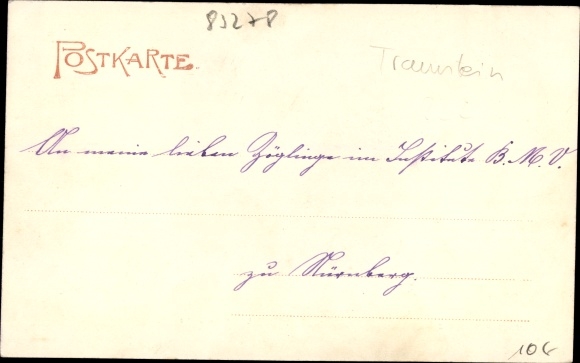 83278
POSTKARTE.
Traunstein
An meine lieben Zöglinge im Institute B. M. V.
zu Nürnberg.
10€